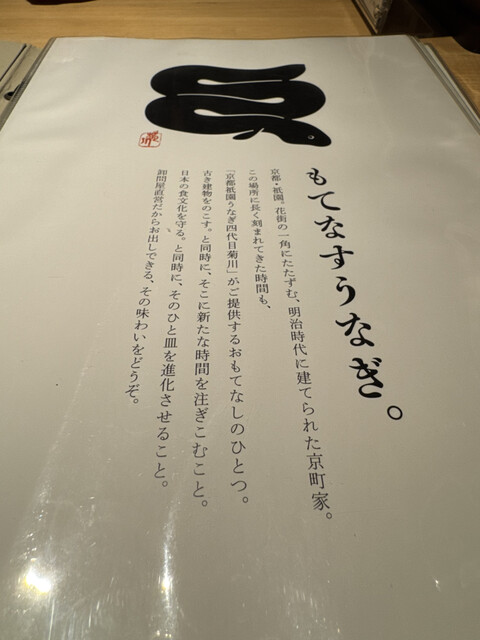 もてなすうなぎ。
京都・祇園。花街の一角にたたずむ、明治時代に建てられた京町家。
この場所に長く刻まれてきた時間も、
「京都祇園うなぎ四代目菊川」がご提供するおもてなしのひとつ。
古き建物をのこす。と同時に、そこに新たな時間を注ぎこむこと。
日本の食文化を守る。と同時に、そのひと皿を進化させること。
卸問屋直営だからお出しできる、その味わいをどうぞ。